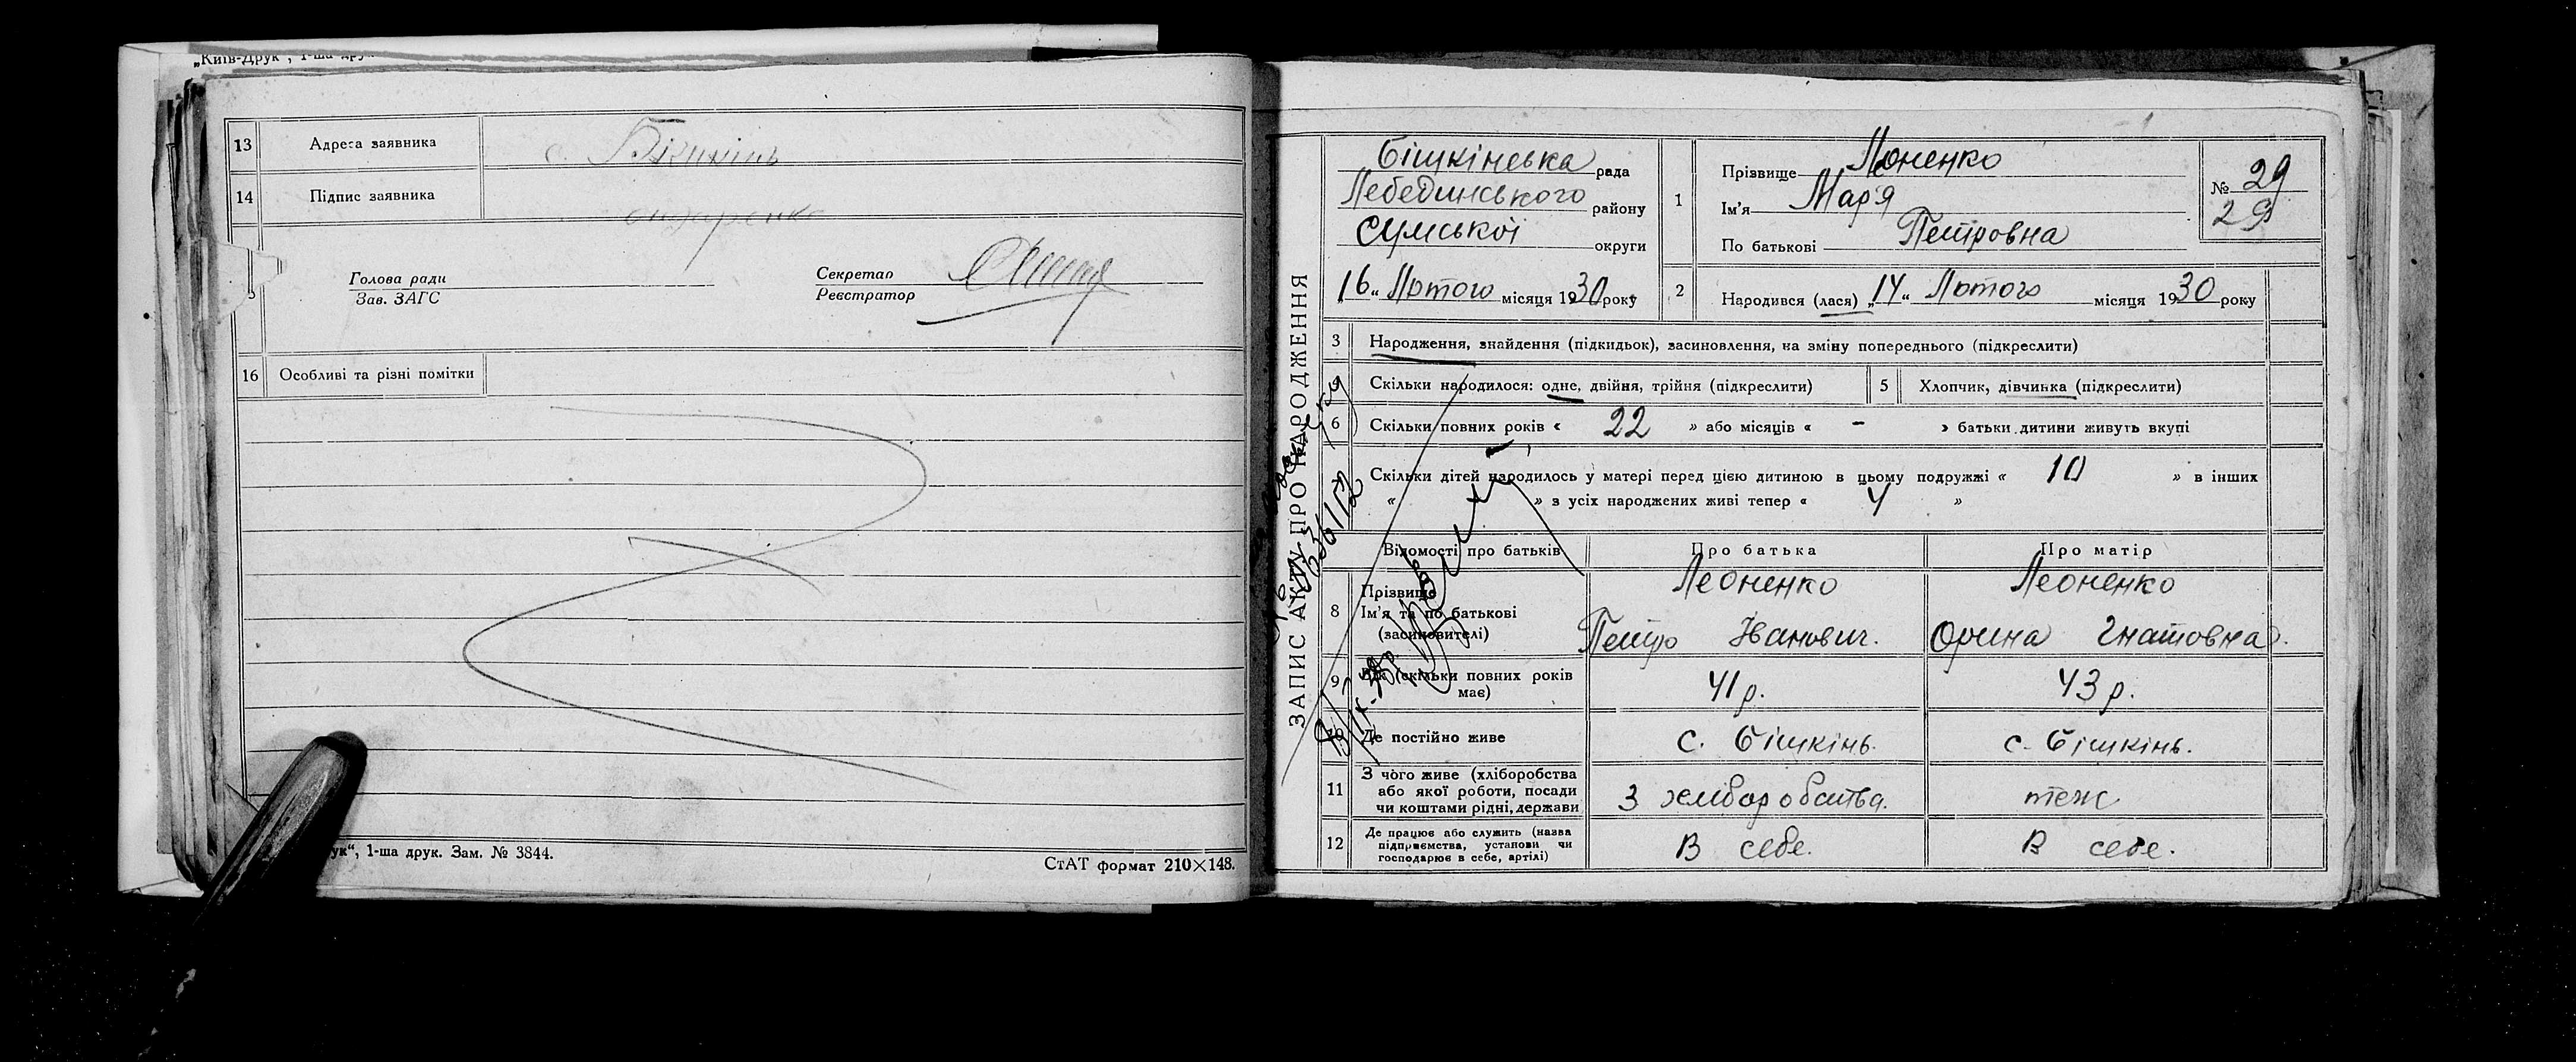 „Київ-Друк", 1-ша друк.
13 Адреса заявника с. Бішкінь
14 Підпис заявника
Голова ради
Зав. ЗАГС
Секретар
Реєстратор
16 Особливі та різні помітки
ук", 1-ша друк. Зам. № 3844.
СтАТ формат 210×148.
ЗАПИС АКТУ ПРО НАРОДЖЕННЯ
Бішкінська рада
Лебединського району
Сумської округи
16 „ Лютого місяця 1930 року
1 Прізвище Леоненко
Ім'я Мар'я
По батькові Петровна
№ 29
29
2 Народився (лася) „14" Лютого місяця 1930 року
3 Народження, знайдення (підкидьок), засиновлення, на зміну попереднього (підкреслити)
Скільки народилося: одне, двійня, трійня (підкреслити)
5 Хлопчик, дівчинка (підкреслити)
6 Скільки повних років « 22 » або місяців « - » батьки дитини живуть вкупі
Скільки дітей народилось у матері перед цією дитиною в цьому подружжі « 10 » в інших
« » з усіх народжених живі тепер « 4 »
Відомості про батьків Про батька Про матір
8 Прізвище Леоненко Леоненко
Ім'я та по батькові Петро Іванович. Орина Гнатовна.
(засиновителі)
9 Вік (скільки повних років має) 41 р. 43 р.
10 Де постійно живе с. Бішкінь. с. Бішкінь.
11 З чого живе (хліборобства
або якої роботи, посади
чи коштами рідні, держави З хліборобства. теж
12 Де працює або служить (назва
підприємства, установи чи
господарює в себе, артілі) В себе. В себе.